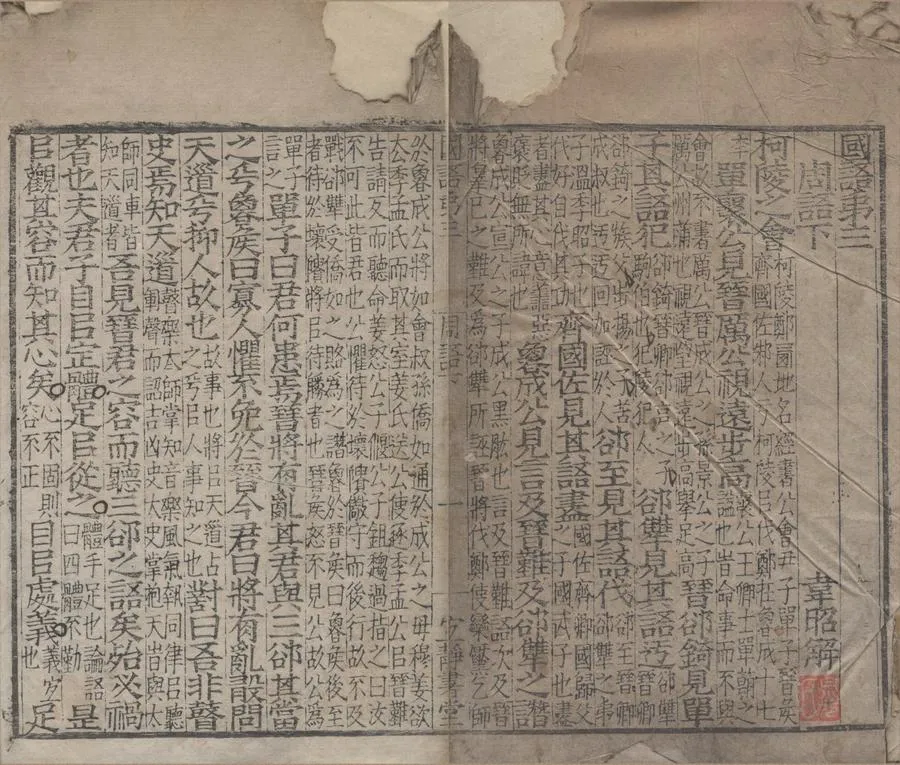 國語第三
周語下　韋昭解
柯陵之會柯陵鄭西地名經書公會尹子單子晉侯
齊國佐邾人于柯陵以伐鄭在魯成十七
年單襄公見晉厲公視遠步高襄公王卿士單朝之
謚也皆命事而不與
會故不書厲公晉成公之孫景公之子
厲公州蒲也視遠望視遠步高舉足高晉郤錡見單
子其語犯郤錡晉卿郤克之子
駒伯也犯陵犯人郤犨見其語迂郤犨晉卿
郤錡之族父步揚之子苦
成叔也迂迂回加誣於人郤至見其語伐郤至晉卿
郤犨之弟
子溫季昭子也
伐好自伐其功齊國佐見其語盡國佐齊卿國歸父
之子國武子也盡
者盡其心意善惡
褒貶無所諱也魯成公見言及晉難及郤犨之譖
魯成公宣公之子成公黑肱也言及晉難語次及
將辜己之難及爲郤犨所誣晉將伐鄭使欒黶乞師
國語第三　周語下　一
於魯成公將如會叔孫僑如通於成公之母穆姜欲
去季孟氏而取其室姜氏送公使逐季孟公以晉難
告請反而聽命姜怒公子偃公子鉏趨過指之曰汝
不可此皆君也公懼待於壞隤儆守而後行故不及
戰郤犨受僑如之賂爲之譖魯於晉侯曰魯侯後至
者待於壞隤將以待勝者也晉侯怒不見公故公爲
單子
言之單子曰君何患焉晉將有亂其君與三郤其當
之乎魯侯曰寡人懼不免於晉今君曰將有亂敢問
天道乎抑人故也故事也將以天道占
之乎以人事知之也對曰吾非瞽
史焉知天道瞽樂太師掌知音樂風氣執同律以聽
軍聲而詔吉凶史太史掌抱天時與太
師同車皆
知天道者吾見晉君之容而聽三郤之語矣殆必禍
者也夫君子目以定體足以從之體手足也論語
曰四體不勤是
以觀其容而知其心矣心不固則
容不正目以處義義宜
也足